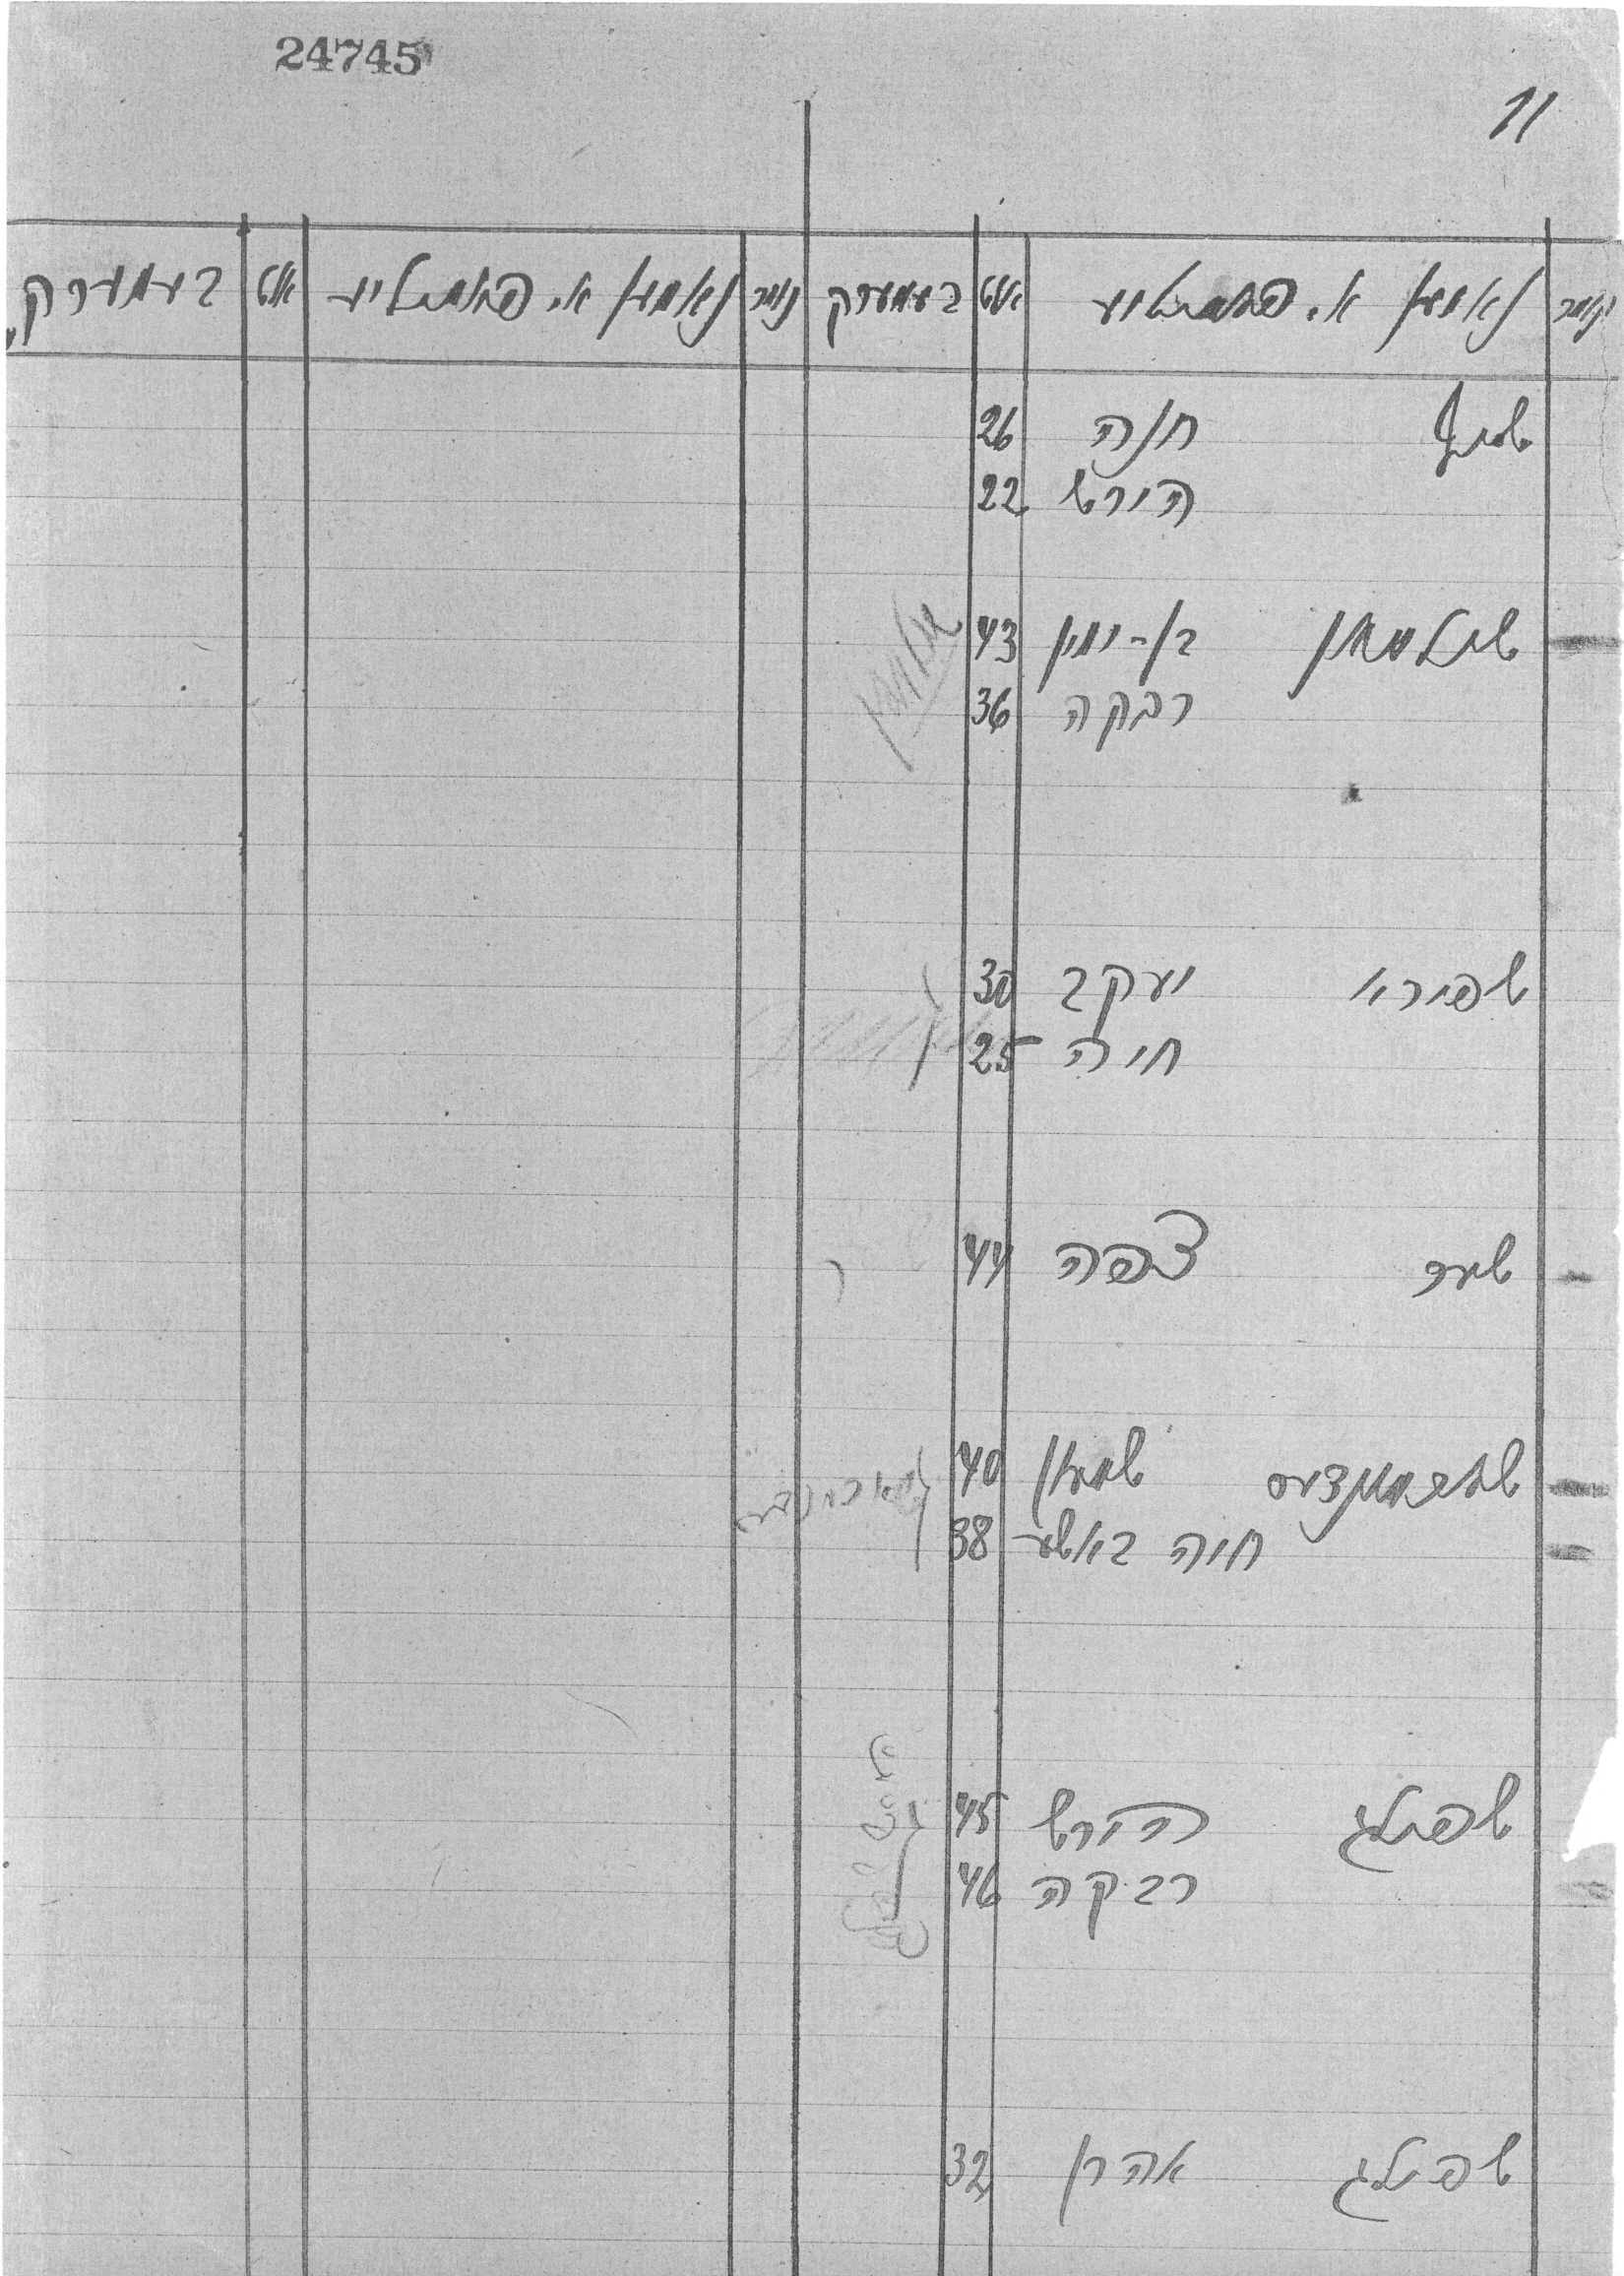 24745
11
נומר נאמען א. פאמיליע אלט בעמערק נומר נאמען א. פאמיליע אלט בעמערק
חנה 26
הירש 22
שולמאן בן-ימין 43
רבקה 36
שפירא יעקב 30
חיה 25
שער צפה 44
שמעון 40
חיה באשע 38
שפילג הירש 45
רבקה 46
שפילג אהרן 32